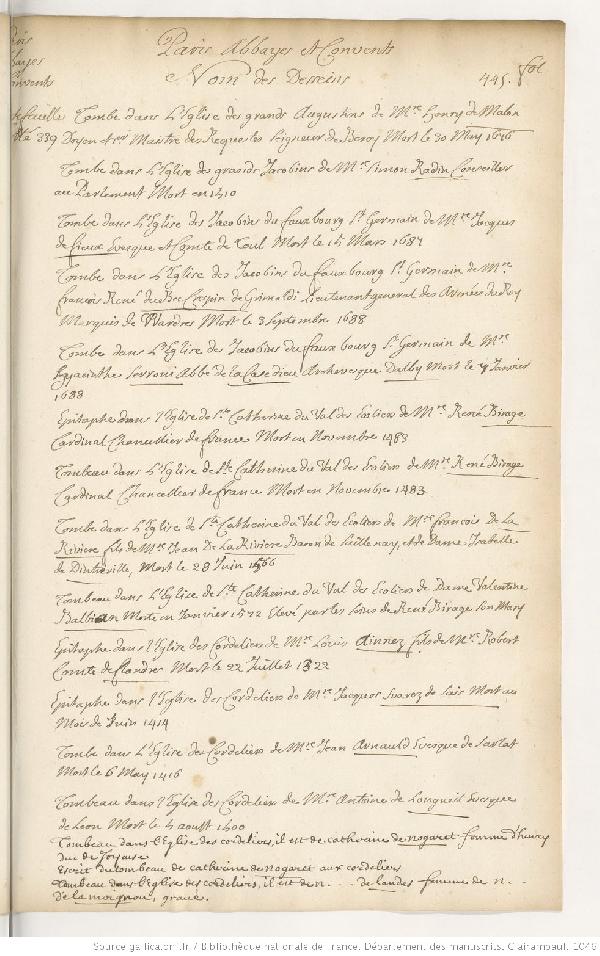 Paris Abbayes et Convents
Nom des Desseins
445. fol
Tombe dans L'Eglise des grands Augustins de Mre Henry de Malon
339 Doyen des Maistre des Requestes Seigneur de Bercy Mort le 30 May 1676
Tombe dans L'Eglise des grands Jacobins de Mre Simon Radin Conseiller
au Parlement Mort en 1410
Tombe dans L'Eglise des Jacobins du faux bourg St Germain de Mre Jacques
de fieux Evesque et Comte de Toul Mort le 15 Mars 1687
Tombe dans L'Eglise des Jacobins du faux bourg St Germain de Mre
françois René du Bec Crespin de Grimaldi Lieutenant general des Armées du Roy
Marquis de Wardes Mort le 3 Septembre 1688
Tombe dans L'Eglise des Jacobins du faux bourg St Germain de Mre
Hyacinthe Serroni Abbé de la Case dieu Archevesque Dalby Mort le 7 Janvier
1688
Epitaphe dans l'Eglise de Ste Catherine du Val des Ecoliers de Mre René Birage
Cardinal Chancellier de france Mort en Novembre 1483
Tombeau dans L'Eglise de Ste Catherine du Val des Ecoliers de Mre René Birage
Cardinal Chancellier de france Mort en Novembre 1483
Tombe dans L'Eglise de Ste Catherine du Val des Ecoliers de Mre francois De La
Riviere fils de Mre Jean De La Riviere Baron de Seillenay, et de Dame Isabelle
de Dinteville, Mort le 28 Juin 1566
Tombeau dans L'Eglise de Ste Catherine du Val des Ecoliers de Dame Valentine
Balbian Morte en Janvier 1572 Elevé par les soins de René Birage son Mary
Epitaphe dans l'Eglise des Cordeliers de Mre Louis Ainnez fils de Mre Robert
Comte de flandres Mort le 22 Juillet 1322
Epitaphe dans l'Eglise des Cordeliers de Mre Jacques Suarez de Sais Mort au
Mois de Juin 1414
Tombe dans L'Eglise des Cordeliers de Mre Jean Arnauld Evesque de Sarlat
Mort le 6 May 1416
Tombeau dans l'Eglise des Cordeliers de Mre Antoine de Longueil Evesque
de Leon Mort le aoust 1400
Tombeau dans l'Eglise des cordeliers, il est de catherine de nogaret femme d'henry
duc de Joyeuse
Escrit du tombeau de catherine de nogaret aux cordeliers
tombeau dans l'Eglise des cordeliers, il est de n... de landes femme de n...
de la moignon, gravé.
Source gallica.bnf.fr / Bibliothèque nationale de France. Département des manuscrits. Clairambault 1046